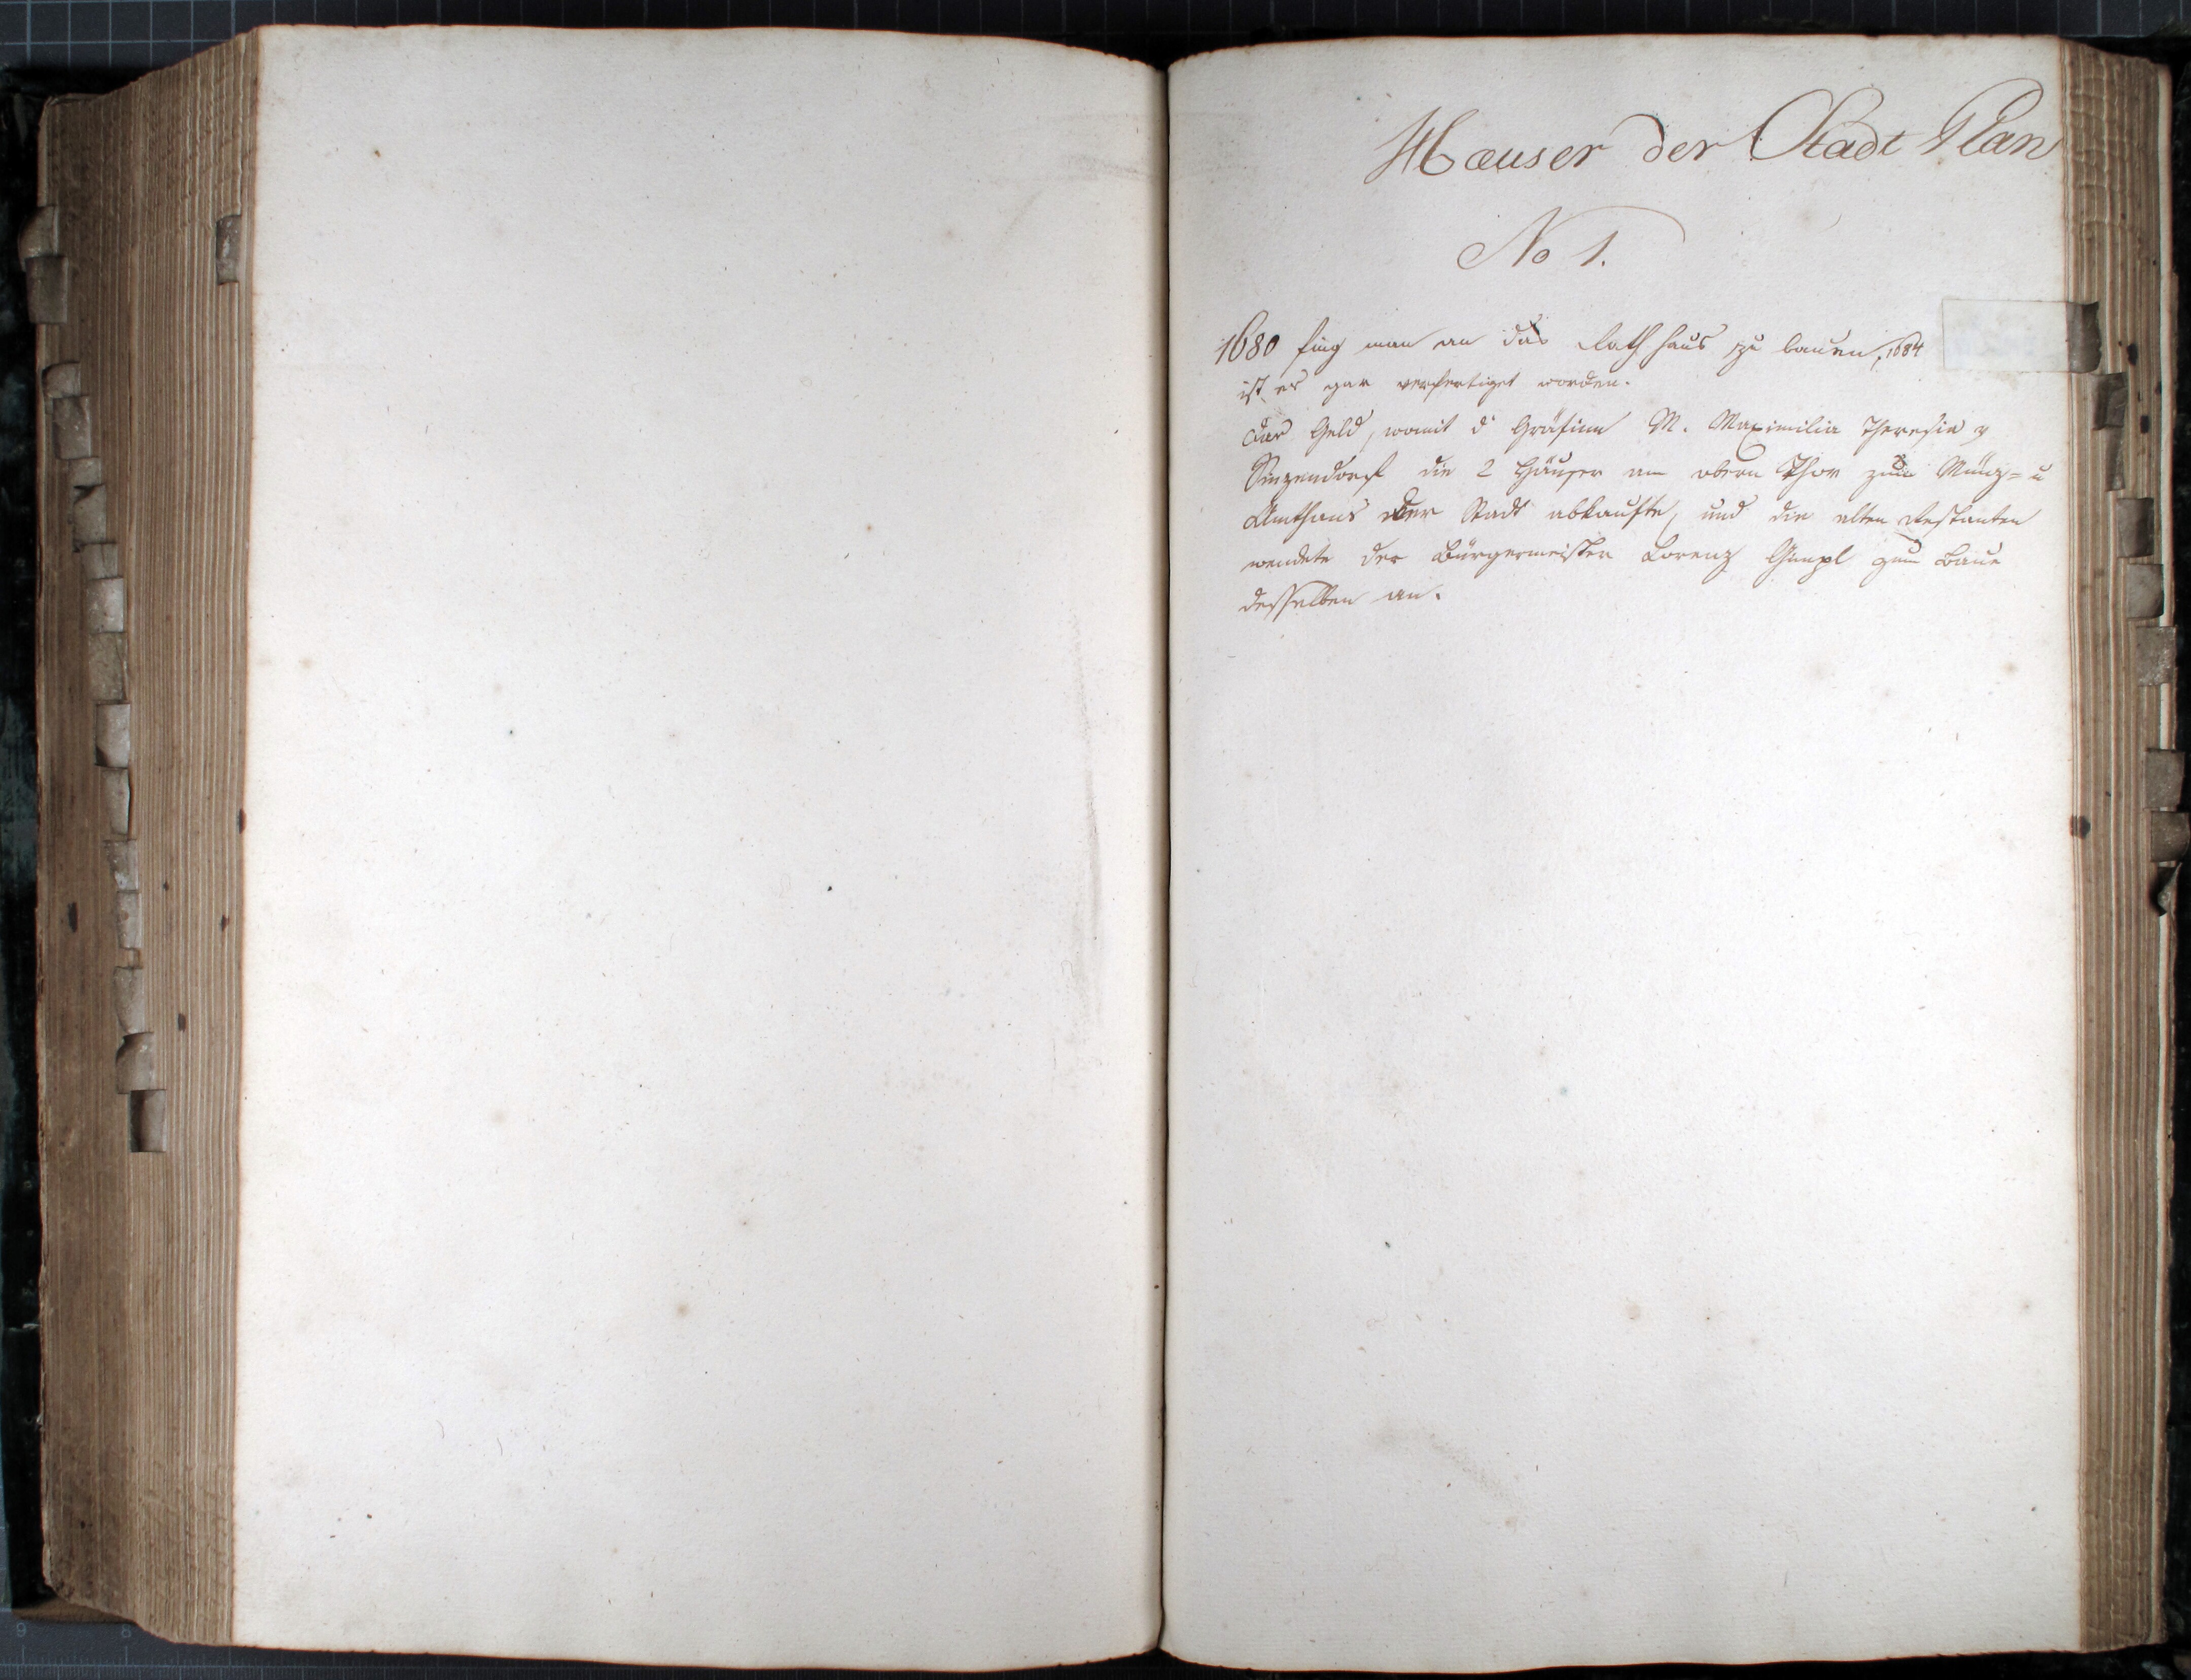 Haeuser der Stadt Plan
No 1.
1680 fing man an das Rathhaus zu bauen, 1684
ist es gar verfertiget worden.
Das Geld, womit d' Gräfinn M. Maximilia Theresia v
Sinzendorf die 2 Häuser am obern Thor zum Münz= u
Amthaus der Stadt abkaufte, und die alten Restanten
wendete der Bürgermeister Lorenz zum Baue
desselben an.